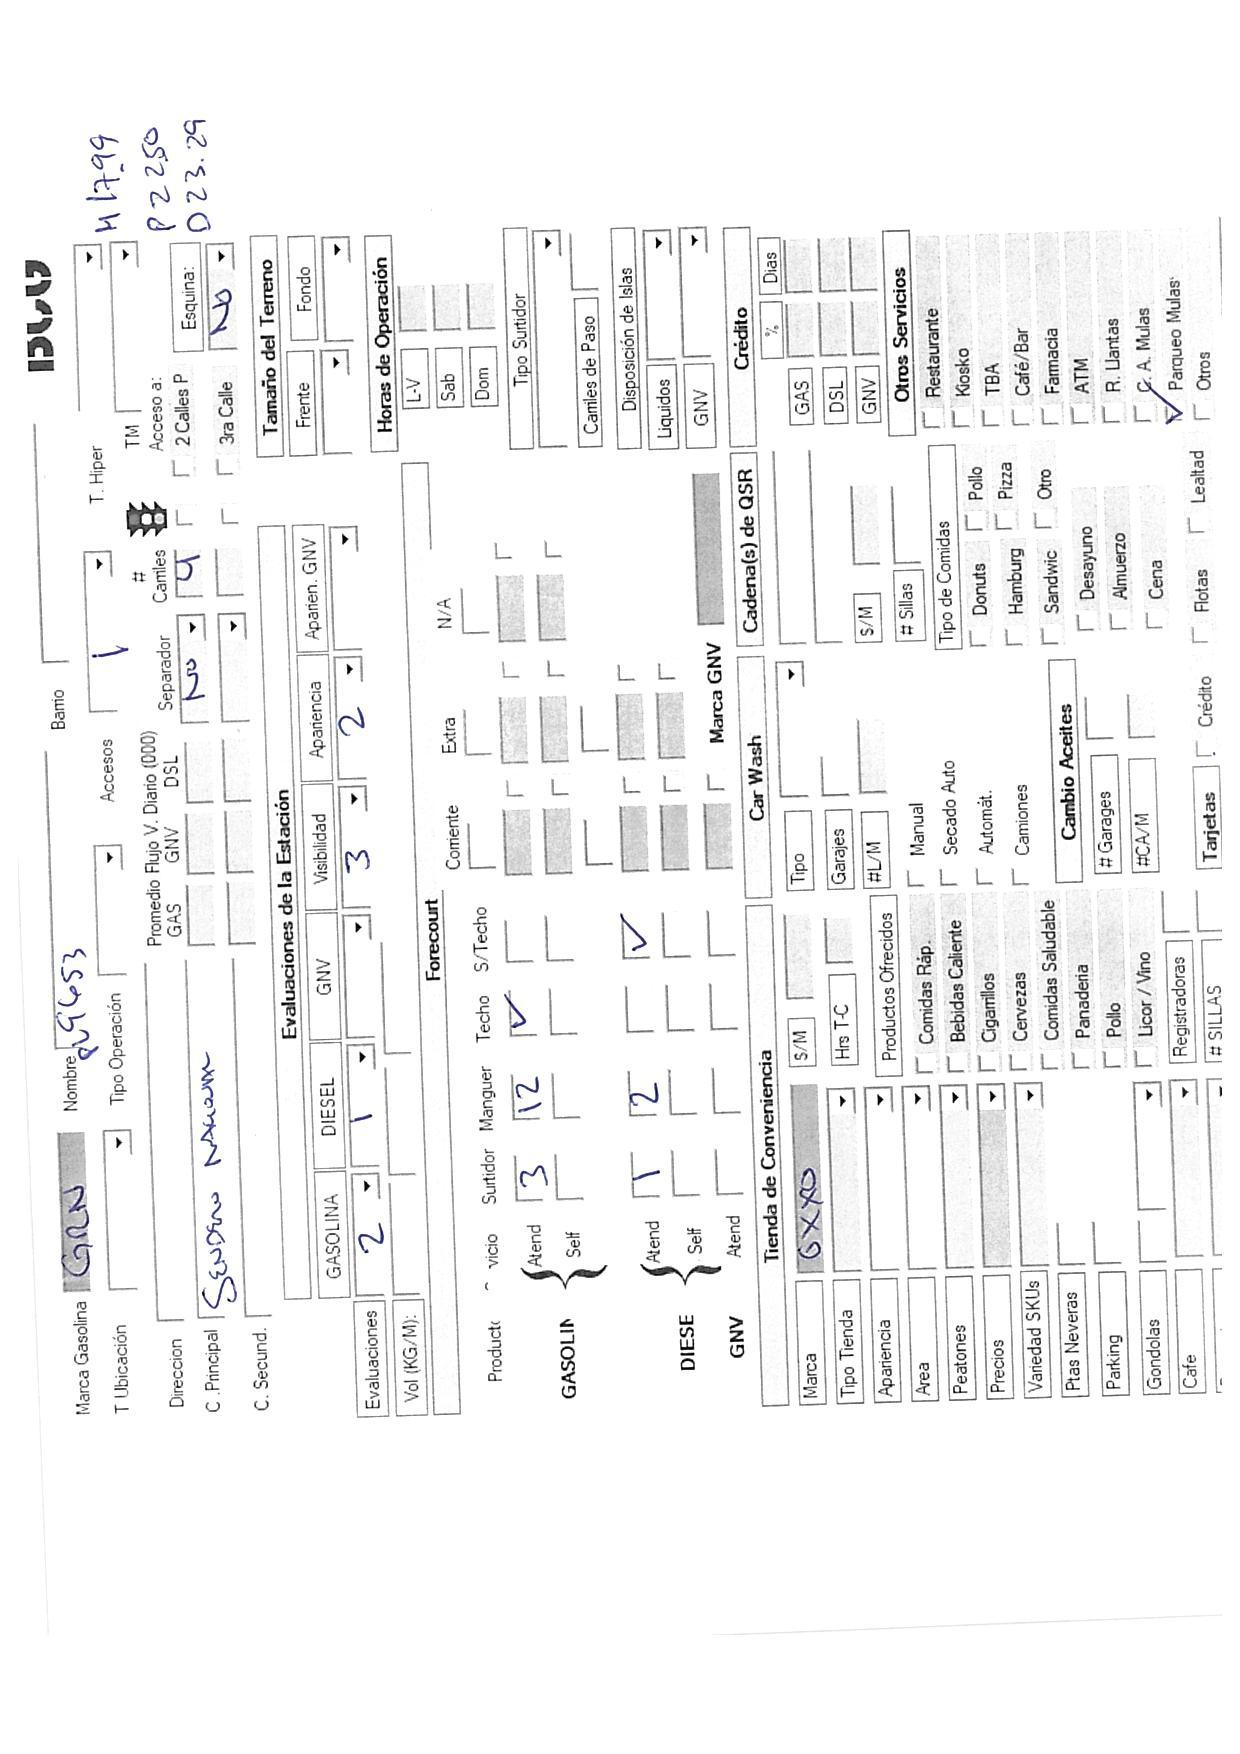 Marca Gasolina GRN Nombre PL9653 Barrio
T Ubicación Tipo Operación Accesos 1 T. Hiper M 17.99
TM
Direccion Promedio Flujo V. Diario (000) Separador # Carriles Acceso a: P 22.50
GAS GNV DSL D 23.29
C .Principal SENDERO NACIONAL No 4 2 Calles P Esquina:
C. Secund. 3ra Calle No
Evaluaciones de la Estación
GASOLINA DIESEL GNV Visibilidad Apariencia Aparien. GNV
Evaluaciones 2 1 3 2
Vol (KG/M):
Tamaño del Terreno
Frente Fondo
Horas de Operación
L-V
Sab
Dom
Forecourt
Product vicio Surtidor Manguer Techo S/Techo Corriente Extra N/A
GASOLIN Atend 3 12 ✓
Self
DIESE Atend 1 2 ✓
Self
GNV Atend Marca GNV
Tipo Surtidor
Carriles de Paso
Disposición de Islas
Liquidos
GNV
Tienda de Conveniencia
Marca OXXO S/M
Tipo Tienda Hrs T-C
Apariencia Productos Ofrecidos
Area Comidas Ráp.
Peatones Bebidas Caliente
Precios Cigarrillos
Variedad SKUs Cervezas
Ptas Neveras Comidas Saludable
Parking Panaderia
Gondolas Pollo
Cafe Licor / Vino
Registradoras
# SILLAS
Car Wash
Tipo
Garajes
#L/M
Manual
Secado Auto
Automát.
Camiones
Cambio Aceites
# Garages
#CA/M
Tarjetas Crédito Flotas Lealtad
Cadena(s) de QSR
S/M
# Sillas
Tipo de Comidas
Donuts Pollo
Hamburg Pizza
Sandwic Otro
Desayuno
Almuerzo
Cena
Crédito
% Dias
GAS
DSL
GNV
Otros Servicios
Restaurante
Kiosko
TBA
Café/Bar
Farmacia
ATM
R. Llantas
C. A. Mulas
✓ Parqueo Mulas
Otros